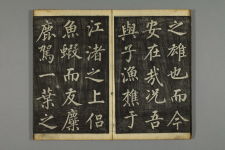 之雄也而今
安在哉況吾
與子漁樵于
江渚之上侶
魚蝦而友麋
鹿駕一葉之